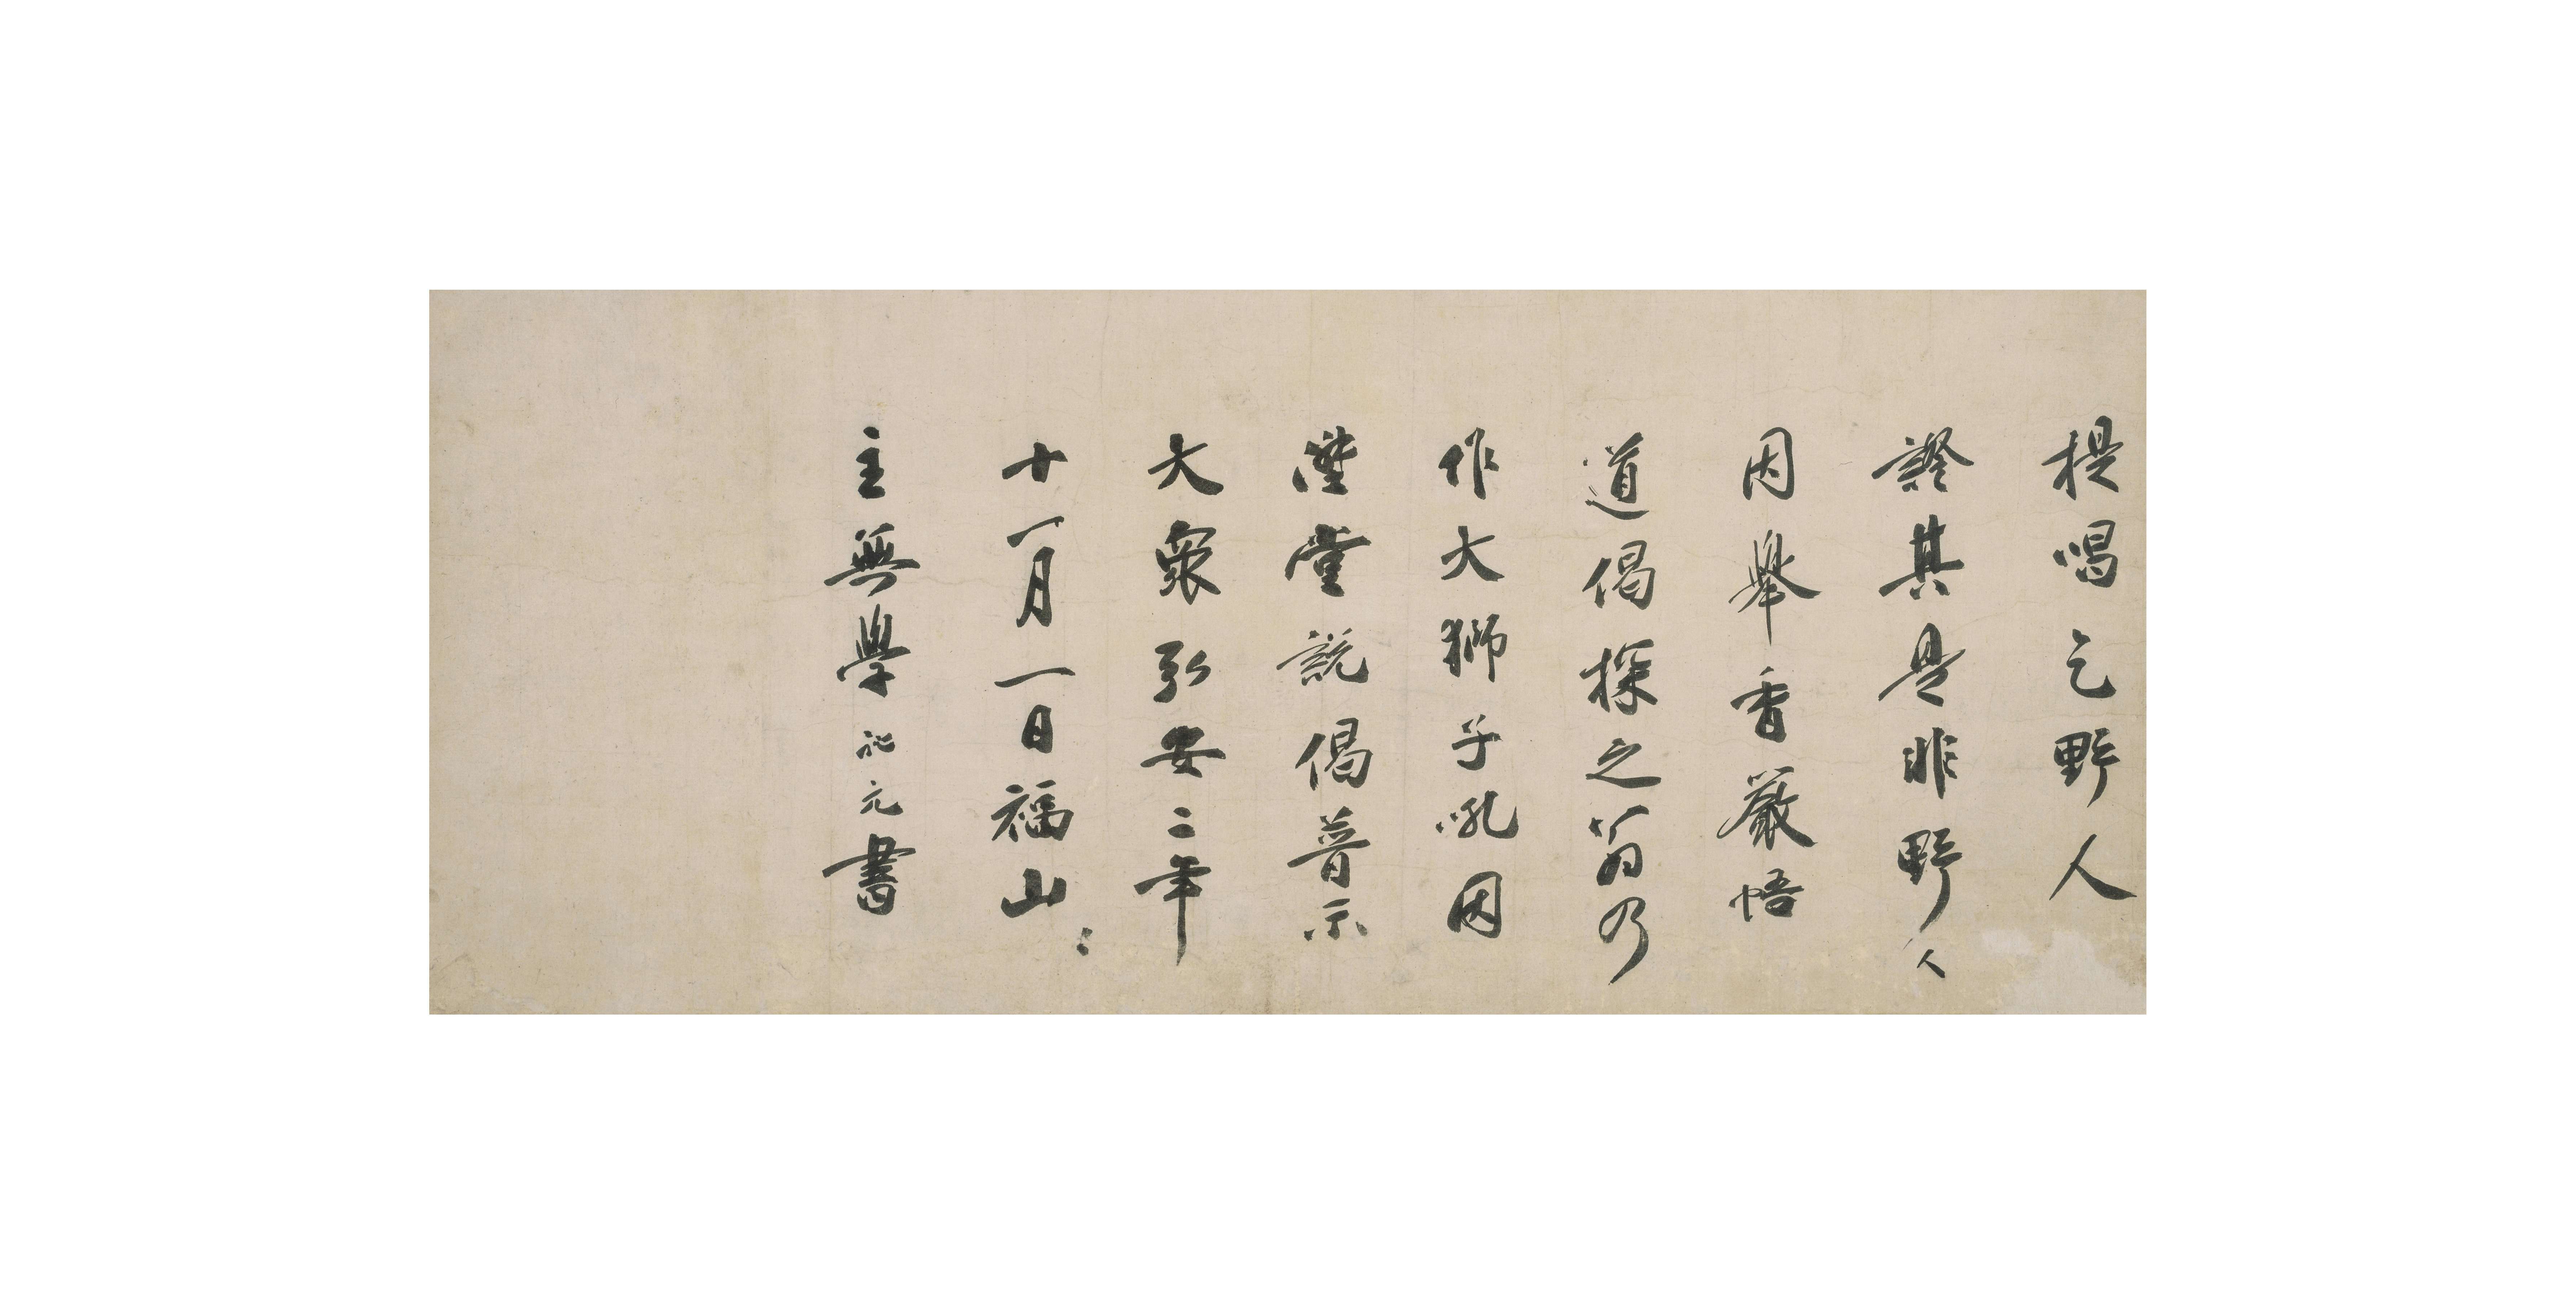 提唱乞野人
證其是非野人
因舉香嚴悟
道偈探之翁乃
作大獅子吼因
陞堂説偈普示
大衆弘安二年
十一月一日福山〻
主無學祖元書